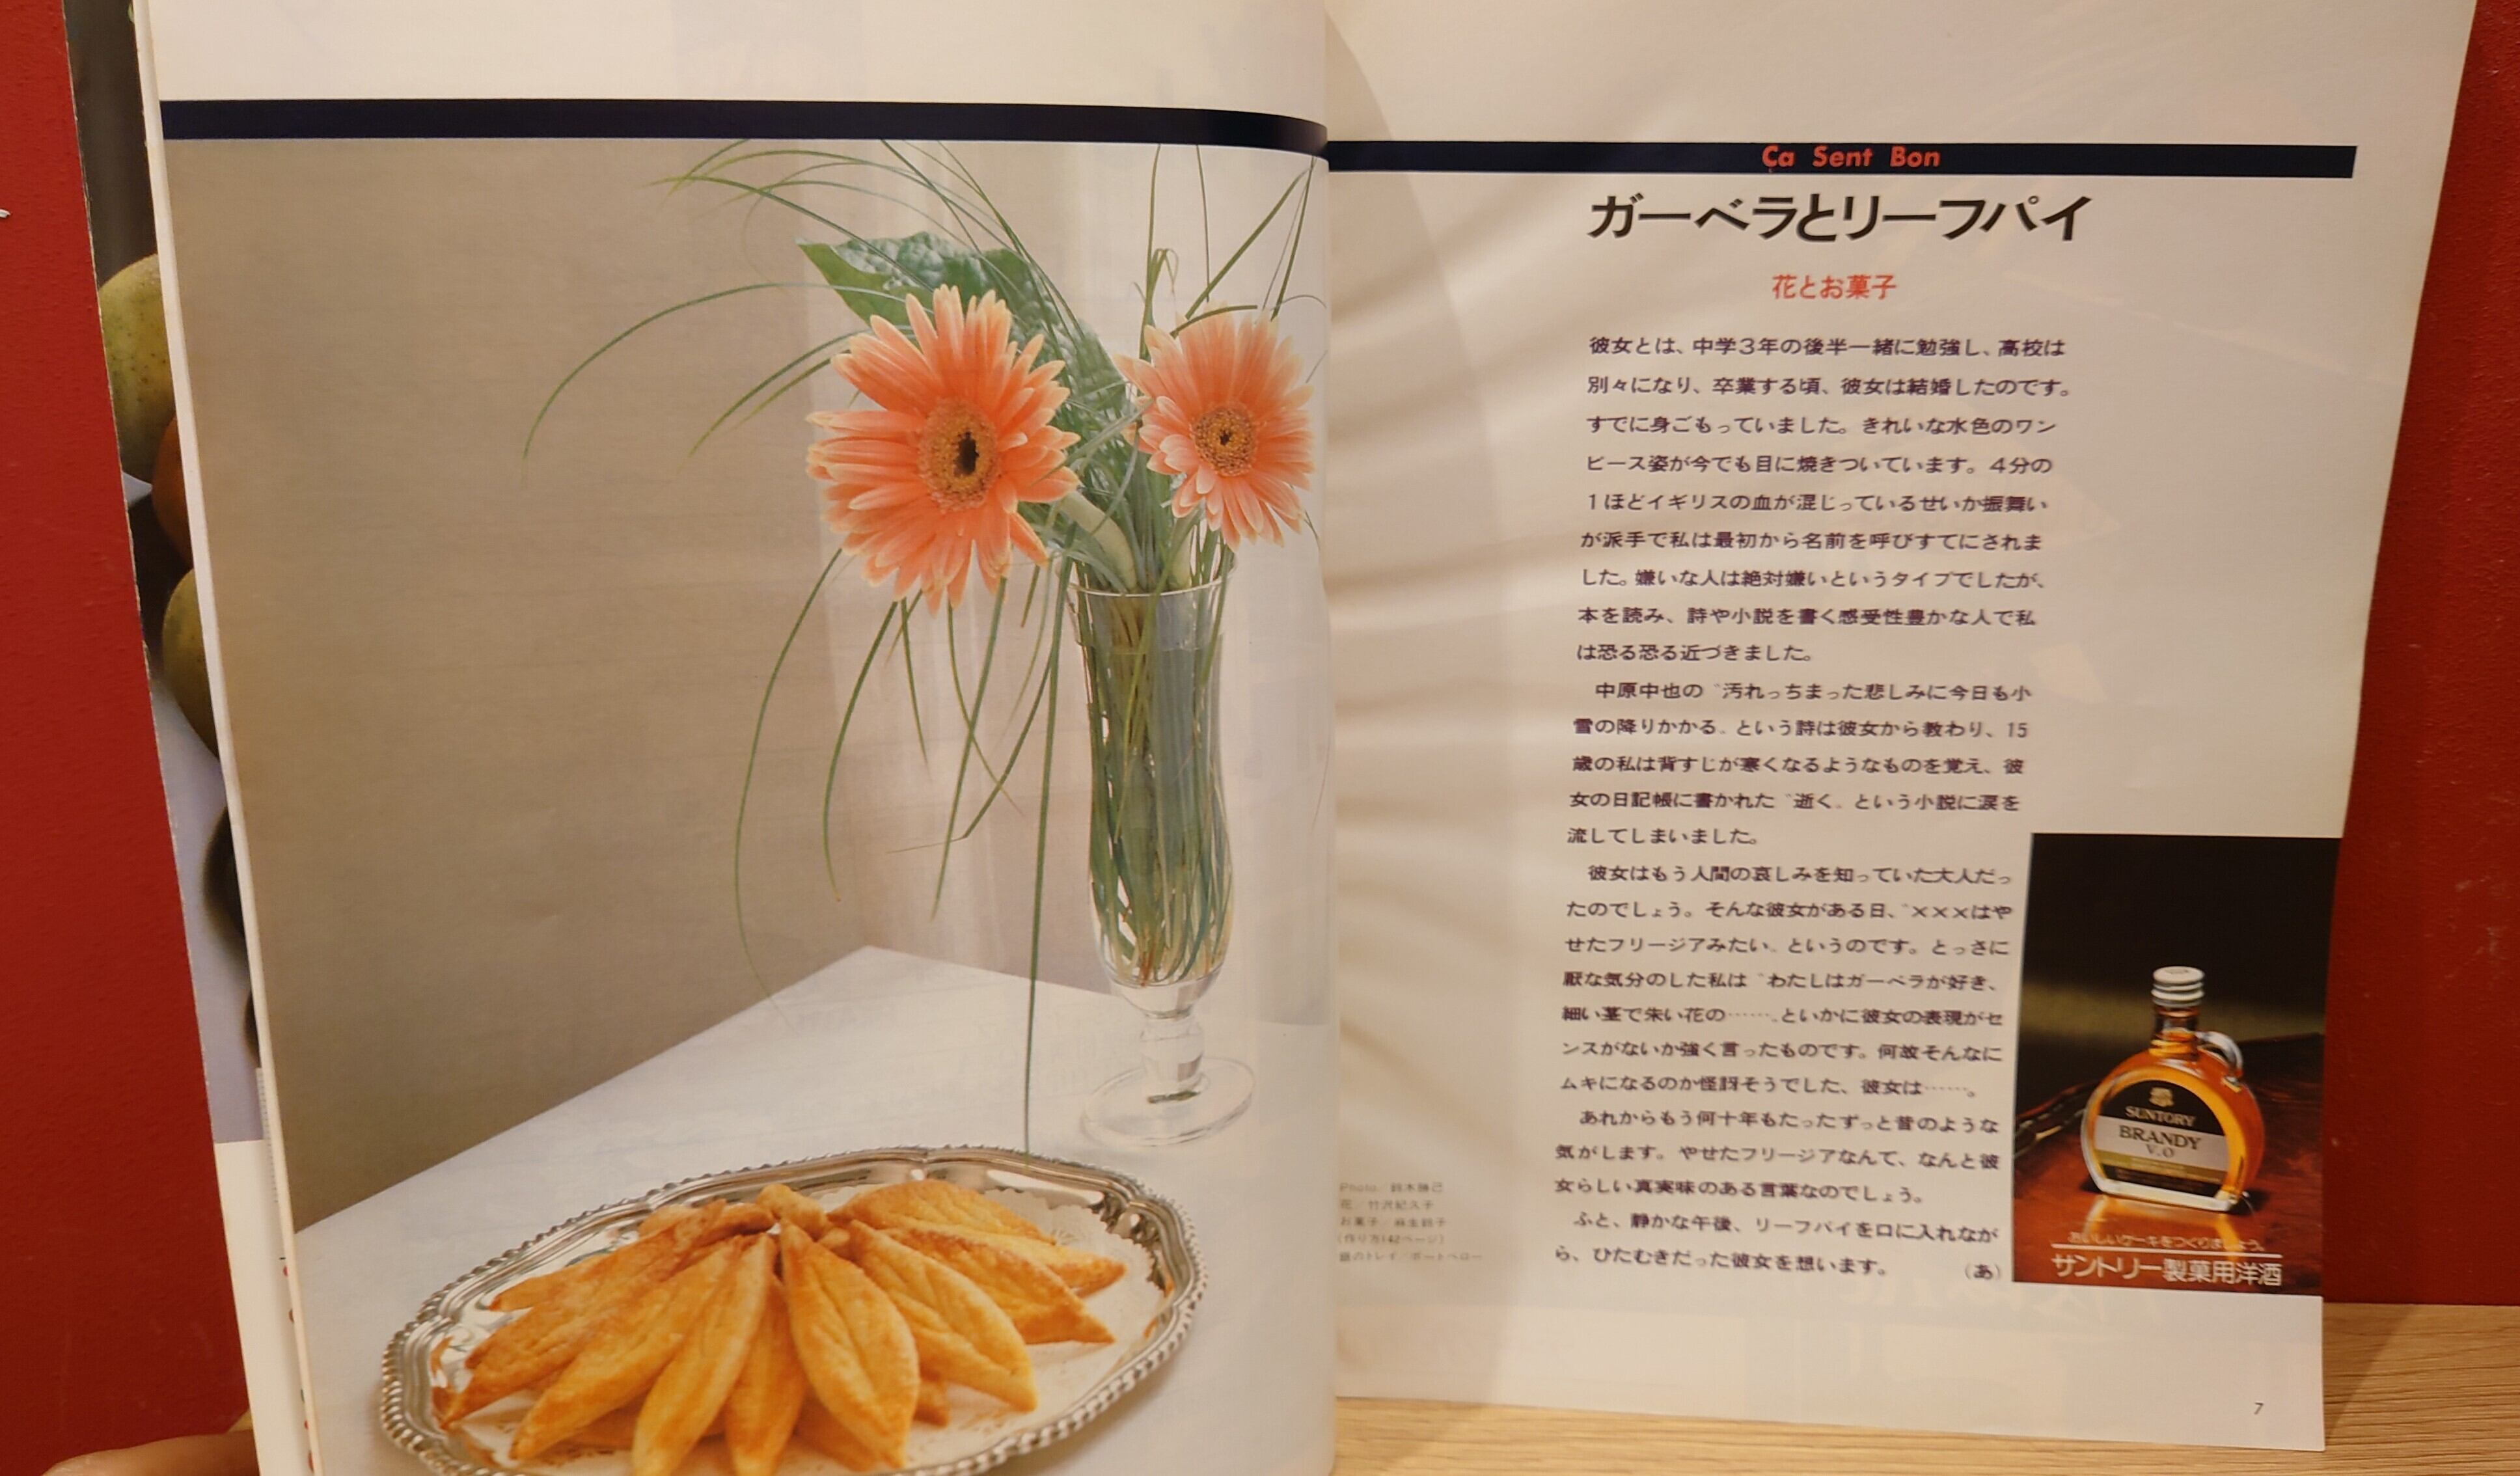 Ça Sent Bon
ガーベラとリーフパイ
花とお菓子
彼女とは、中学3年の後半一緒に勉強し、高校は
別々になり、卒業する頃、彼女は結婚したのです。
すでに身ごもっていました。きれいな水色のワン
ピース姿が今でも目に焼きついています。4分の
1ほどイギリスの血が混じっているせいか振舞い
が派手で私は最初から名前を呼びすてにされま
した。嫌いな人は絶対嫌いというタイプでしたが、
本を読み、詩や小説を書く感受性豊かな人で私
は恐る恐る近づきました。
中原中也の〝汚れっちまった悲しみに今日も小
雪の降りかかる〟という詩は彼女から教わり、15
歳の私は背すじが寒くなるようなものを覚え、彼
女の日記帳に書かれた〝逝く〟という小説に涙を
流してしまいました。
彼女はもう人間の哀しみを知っていた大人だっ
たのでしょう。そんな彼女がある日、〝×××はや
せたフリージアみたい〟というのです。とっさに
厭な気分のした私は〝わたしはガーベラが好き、
細い茎で朱い花の……〟といかに彼女の表現がセ
ンスがないか強く言ったものです。何故そんなに
ムキになるのか怪訝そうでした、彼女は……。
あれからもう何十年もたったずっと昔のような
気がします。やせたフリージアなんて、なんと彼
女らしい真実味のある言葉なのでしょう。
ふと、静かな午後、リーフパイを口に入れなが
ら、ひたむきだった彼女を想います。 (あ)
Photo/鈴木勝己
花/竹沢紀久子
お菓子/
(作り方142ページ)
銀のトレイ/ポートベロー
SUNTORY
BRANDY
V.O
おいしいケーキをつくりましょう。
サントリー製菓用洋酒
7